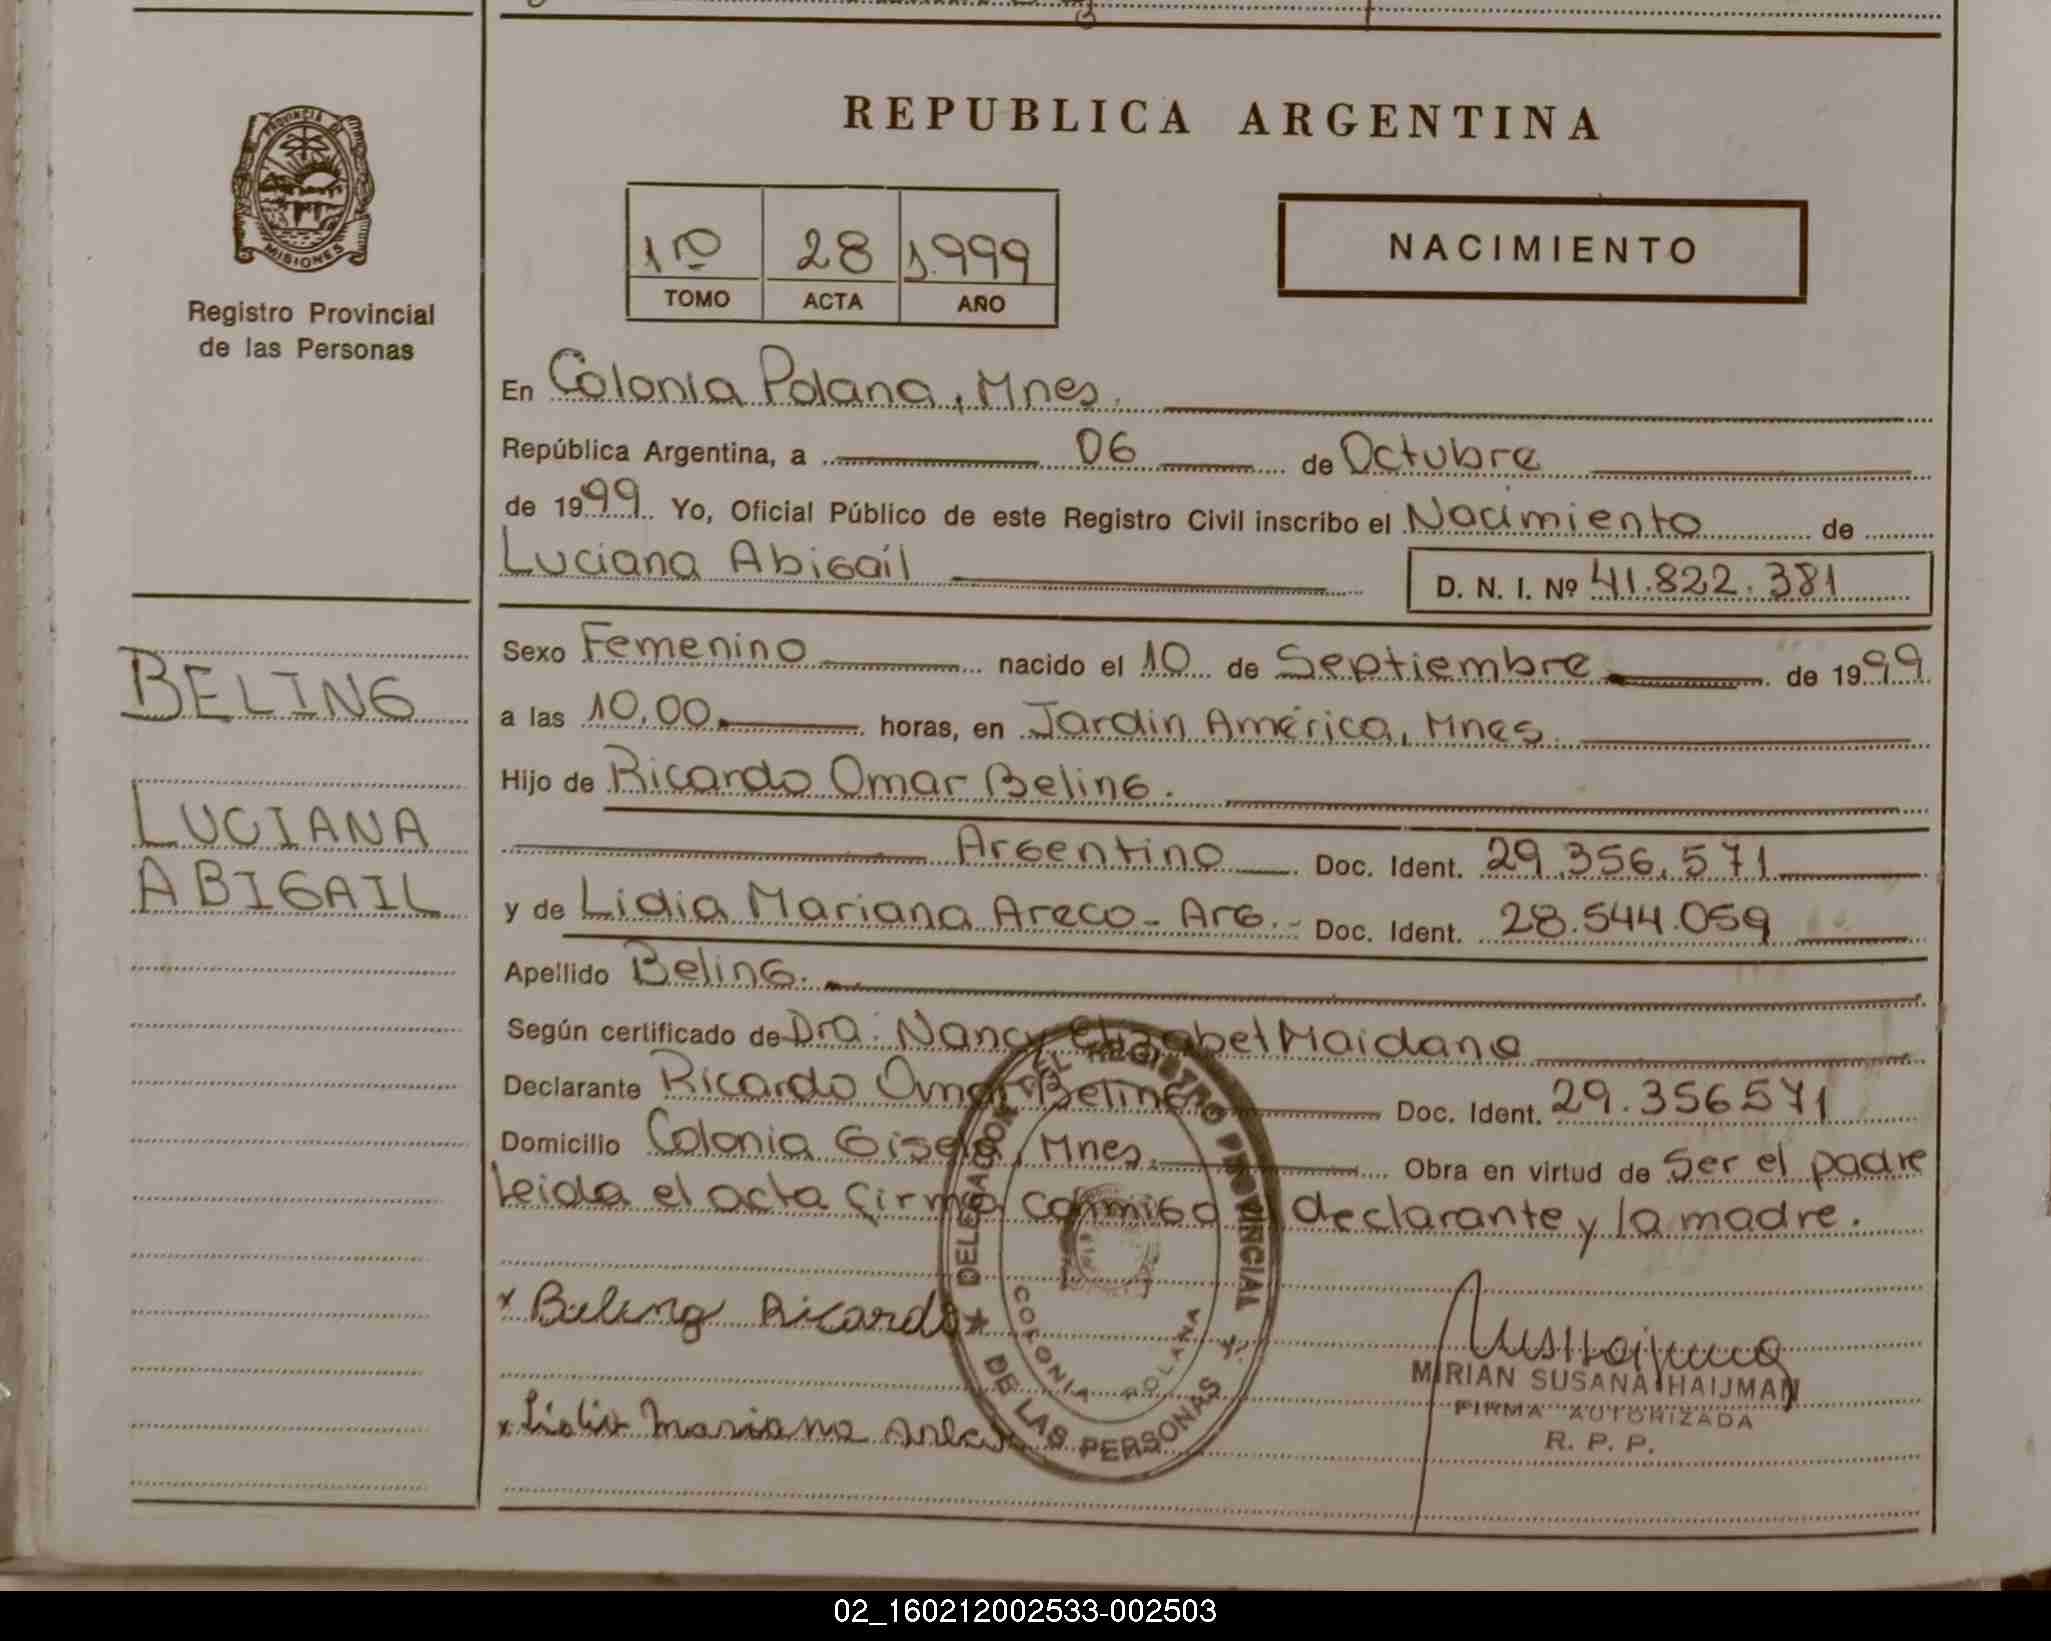 PROVINCIA DE
MISIONES
Registro Provincial
de las Personas
BELING
LUCIANA
ABIGAIL
REPUBLICA ARGENTINA
1ro 28 1.999
TOMO ACTA AÑO
NACIMIENTO
En Colonia Polana, Mnes.
República Argentina, a 06 de Octubre
de 1999 Yo, Oficial Público de este Registro Civil inscribo el Nacimiento de
Luciana Abigaíl D. N. I. Nº 41.822.381
Sexo Femenino nacido el 10 de Septiembre de 1999
a las 10,00 horas, en Jardín América, Mnes.
Hijo de Ricardo Omar Beling.
Argentino Doc. Ident. 29.356.571
y de Lidia Mariana Areco - Arg. - Doc. Ident. 28.544.059
Apellido Beling.
Según certificado de Dra. Nancy Elizabet Maidana
Declarante Ricardo Omar Beling Doc. Ident. 29.356571
Domicilio Colonia Gisela, Mnes. Obra en virtud de Ser el padre
Leida el acta firma conmigo declarante y la madre.
x Beling Ricardo
x Lidia Mariana Areco
DELEGACION DEL REGISTRO PROVINCIAL
DE LAS PERSONAS
COLONIA POLANA
MIRIAN SUSANA HAIJMAN
FIRMA AUTORIZADA
R. P. P.
02_160212002533-002503